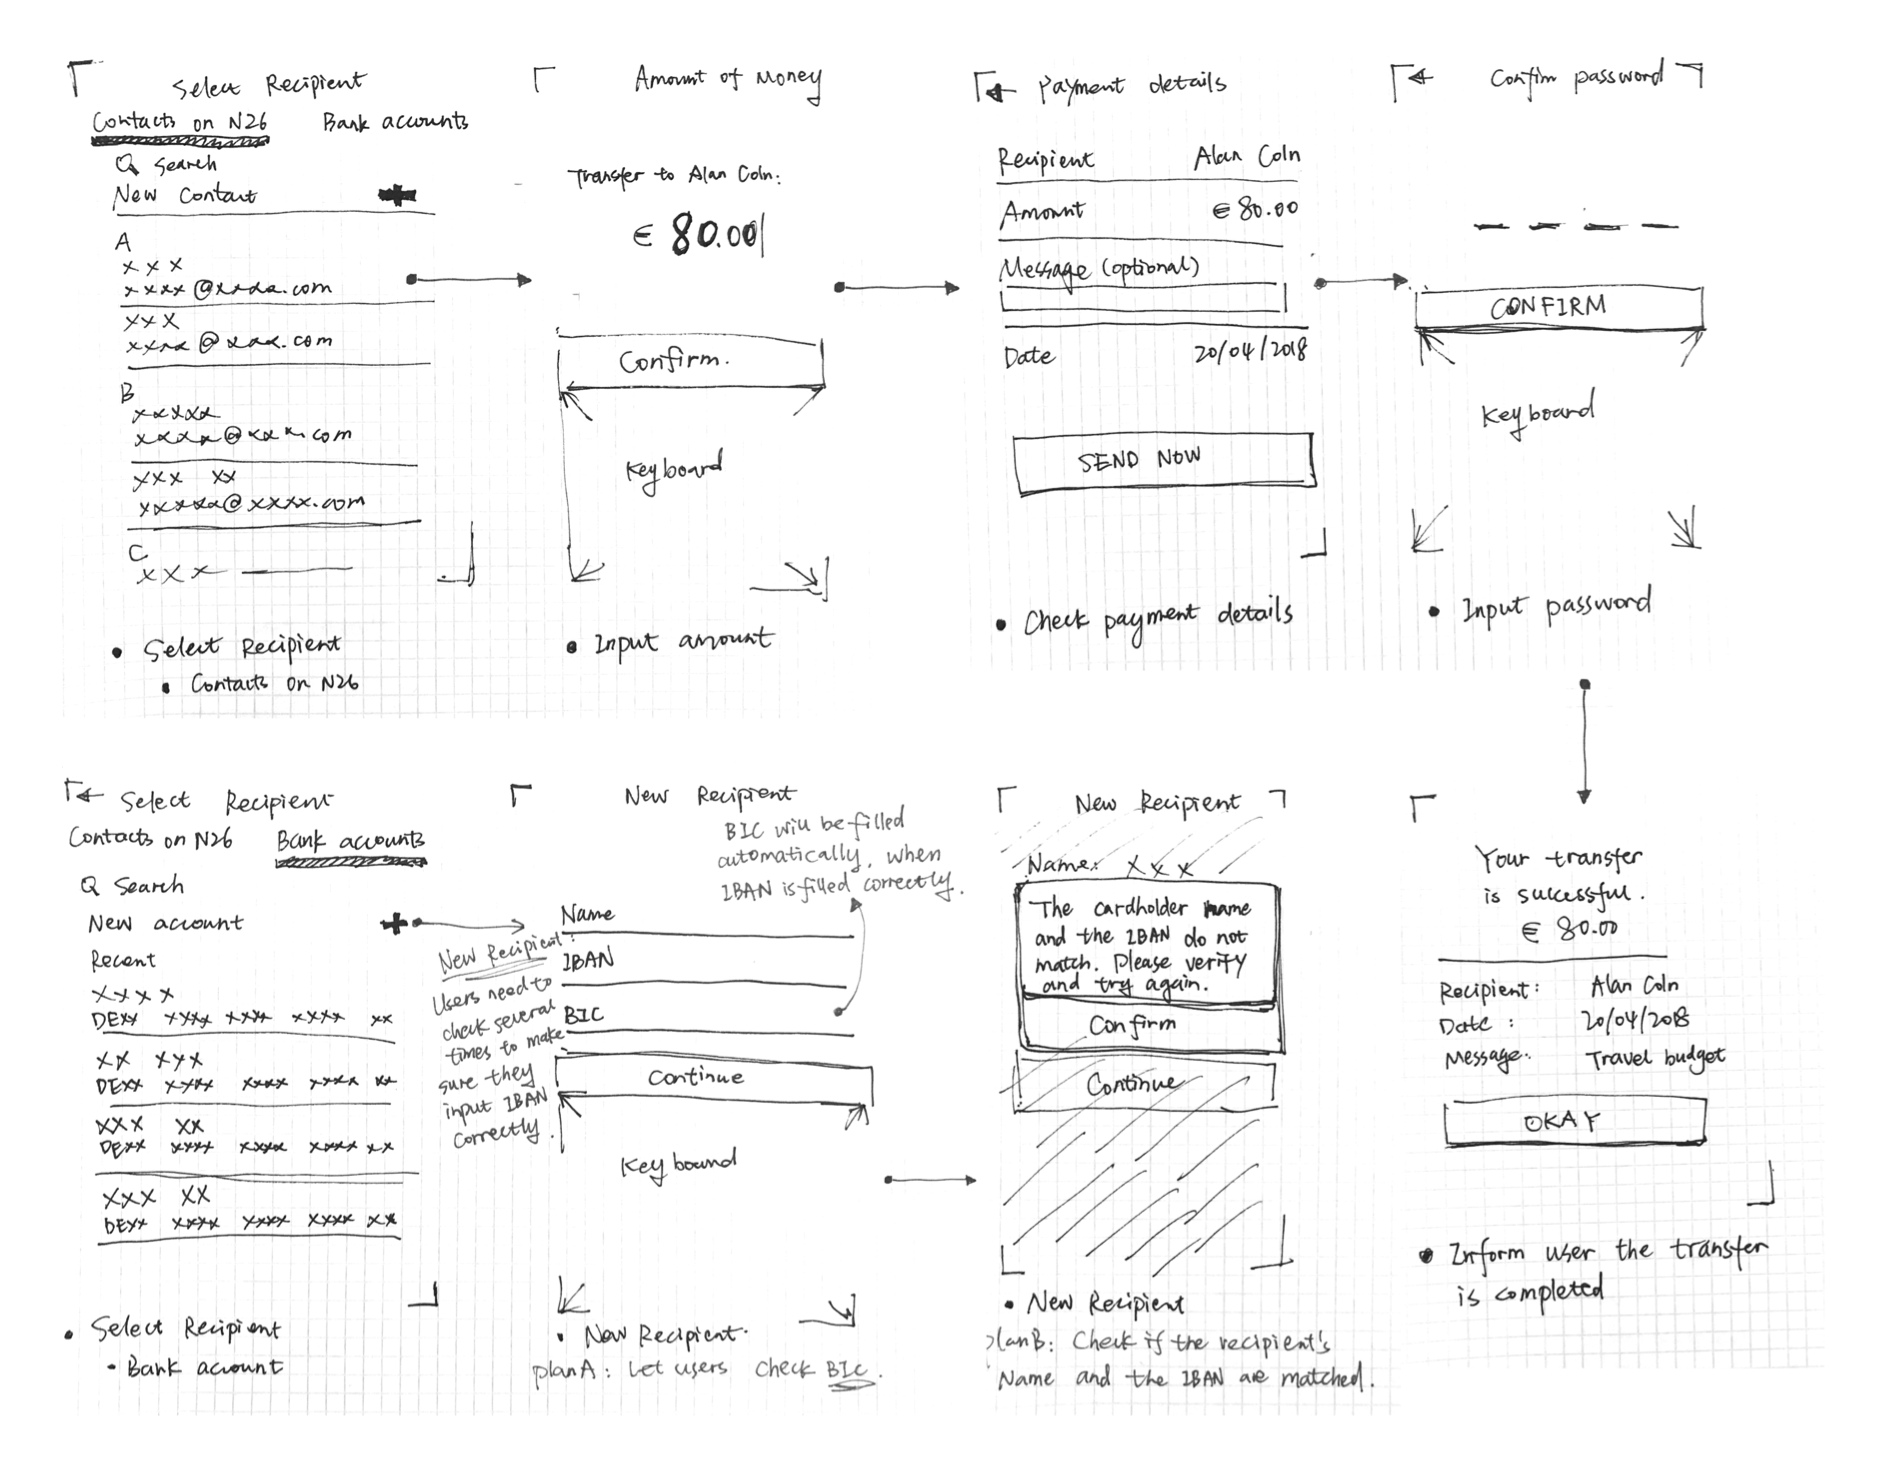 Select Recipient
Contacts on N26 Bank accounts
Search
New Contact
A
x x x
xxxx@xxxx.com
xxx
xxxx@xxx.com
B
xxxxx
xxxxx@xxx.com
xxx xx
xxxxxx@xxxx.com
C
xxx
• Select Recipient
• Contacts on N26
Amount of Money
Transfer to Alan Coln:
€ 80.00
Confirm.
Keyboard
• Input amount
Payment details
Recipient Alan Coln
Amount €80.00
Message (optional)
Date 20/04/2018
SEND NOW
• Check payment details
Confim password
CONFIRM
Keyboard
• Input password
Select Recipient
Contacts on N26 Bank accounts
Search
New account
Recent
xxxx
DExx xxxx xxxx xxxx xx
xx xxx
DExx xxxx xxxx xxxx xx
xxx xx
DExx xxxx xxxx xxxx xx
xxx xx
DExx xxxx xxxx xxxx xx
• Select Recipient
• Bank account
New Recipient:
Users need to
check several
times to make
sure they
input IBAN
correctly.
New Recipient
BIC will be filled
automatically, when
IBAN is filled correctly.
Name
IBAN
BIC
Continue
Keyboand
• New Recipient.
planA: Let users check BIC.
New Recipient
Name: xxx
The cardholder name
and the IBAN do not
match. Please verify
and try again.
Confirm
Continue
• New Recipient
planB: Check if the recipient's
Name and the IBAN are matched.
Your transfer
is successful.
€ 80.00
Recipient: Alan Coln
Date: 20/04/2018
Message: Travel budget
OKAY
• Inform user the transfer
is completed